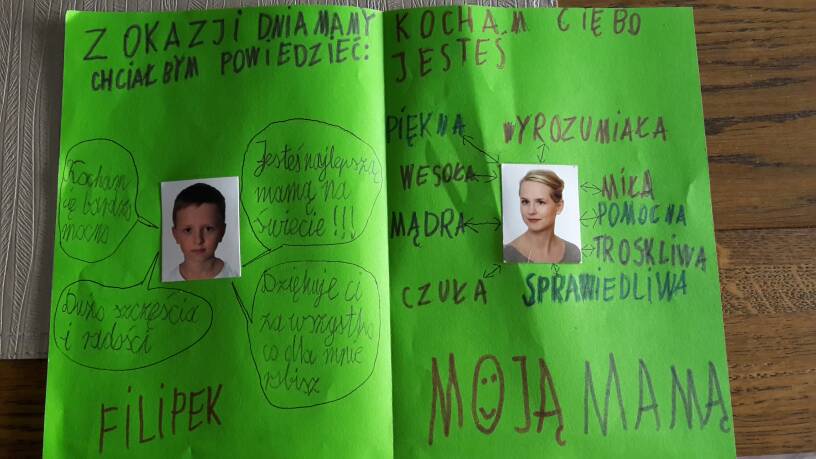 Z OKAZJI DNIA MAMY
CHCIAŁBYM POWIEDZIEĆ:
Kocham
cię bardzo
mocno
Jesteś najlepszą
mamą na
świecie !!!
Dużo szczęścia
i radości
Dziękuje ci
za wszystko
co dla mnie
robisz
FILIPEK
KOCHAM CIĘ BO
JESTEŚ
PIĘKNA
WYROZUMIAŁA
WESOŁA
MIŁA
MĄDRA
POMOCNA
TROSKLIWA
CZUŁA
SPRAWIEDLIWA
MOJĄ MAMĄ